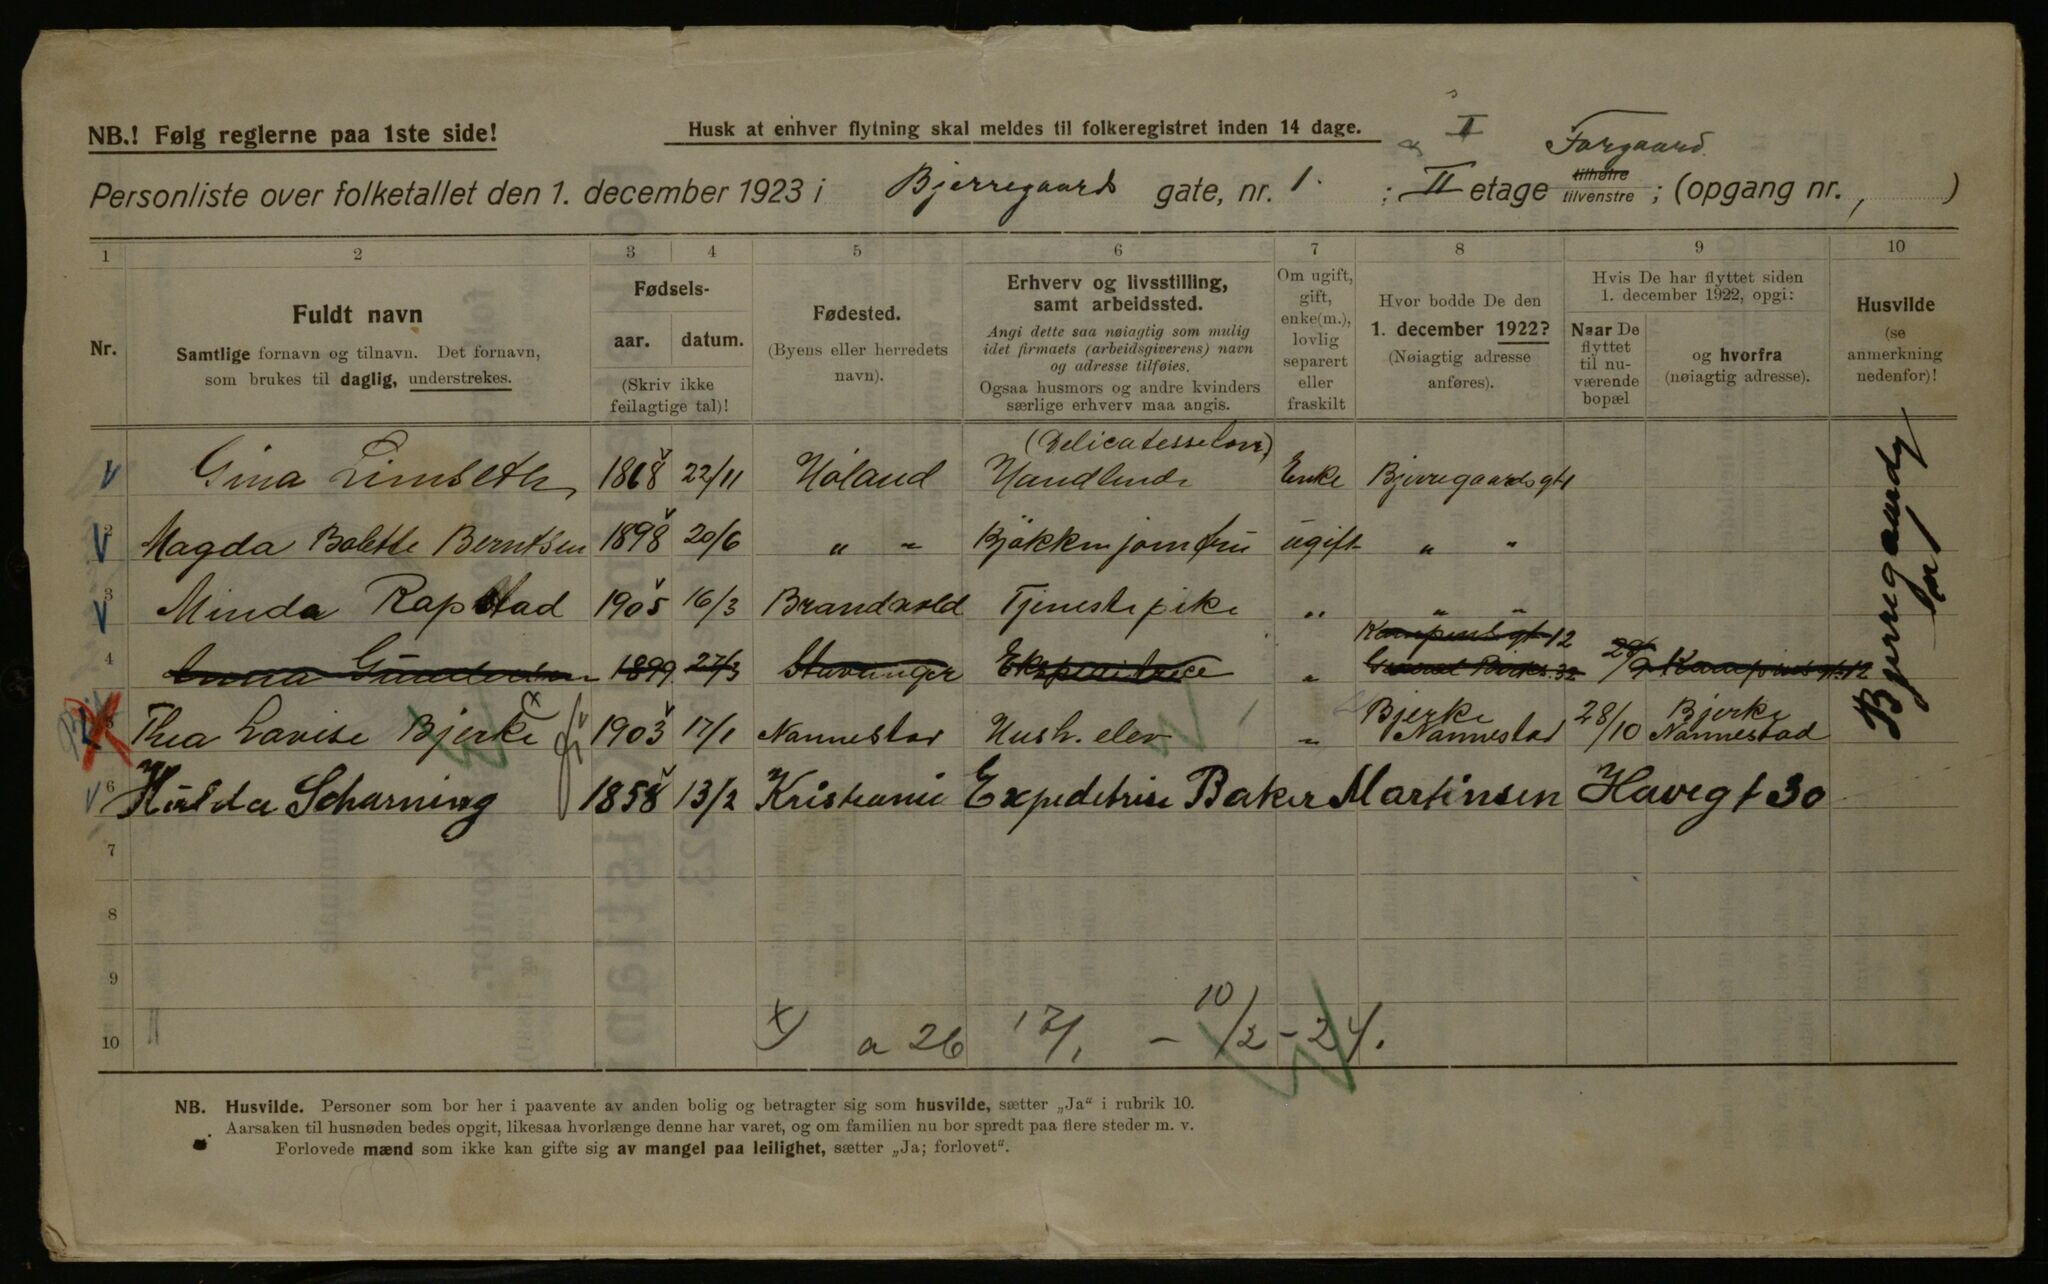 NB.! Følg reglerne paa 1ste side!
Husk at enhver flytning skal meldes til folkeregistret inden 14 dage.
I Forgaard
Personliste over folketallet den 1. december 1923 i Bjerregaards gate, nr. 1. ; II etage tilhøire tilvenstre ; (opgang nr., )
1 2 3 4 5 6 7 8 9 10
Nr.
Fuldt navn
Samtlige fornavn og tilnavn. Det fornavn,
som brukes til daglig, understrekes.
Fødsels-
aar. datum.
(Skriv ikke
feilagtige tal)!
Fødested.
(Byens eller herredets
navn).
Erhverv og livsstilling,
samt arbeidssted.
Angi dette saa nøiagtig som mulig
idet firmaets (arbeidsgiverens) navn
og adresse tilføies.
Ogsaa husmors og andre kvinders
særlige erhverv maa angis.
Om ugift,
gift,
enke(m.),
lovlig
separert
eller
fraskilt
Hvor bodde De den
1. december 1922?
(Nøiagtig adresse
anføres).
Hvis De har flyttet siden
1. december 1922, opgi:
Naar De
flyttet
til nu-
værende
bopæl
og hvorfra
(nøiagtig adresse).
Husvilde
(se
anmerkning
nedenfor)!
Gina Limseth 1868 22/11 Høland Handlende Enke Bjerregaardsgt 1
2 Magda Bolette Berntsen 1898 20/6 " " Kjøkkenjomfru ugift " "
3 Minda Rapstad 1905 16/3 Brandvold Tjenestepike " " "
Kampensgt 12
4 Anna Gundersen 1899 27/3 Stavanger Ekspeditrice " 32 Kampensgt. 12
5 Thea Lovise Bjerke x 1903 17/1 Nannestad Hush. elev " Bjerke Nannestad 28/10 Bjerke Nannestad
6 Hulda Scharning 1858 13/2 Kristiania Expeditrise Baker Martinsen Havegt 30
7
8
9
10
x) a 26 17/1 - 10/2 - 24.
NB. Husvilde. Personer som bor her i paavente av anden bolig og betragter sig som husvilde, sætter „Ja“ i rubrik 10.
Aarsaken til husnøden bedes opgit, likesaa hvorlænge denne har varet, og om familien nu bor spredt paa flere steder m. v.
Forlovede mænd som ikke kan gifte sig av mangel paa leilighet, sætter „Ja; forlovet“.